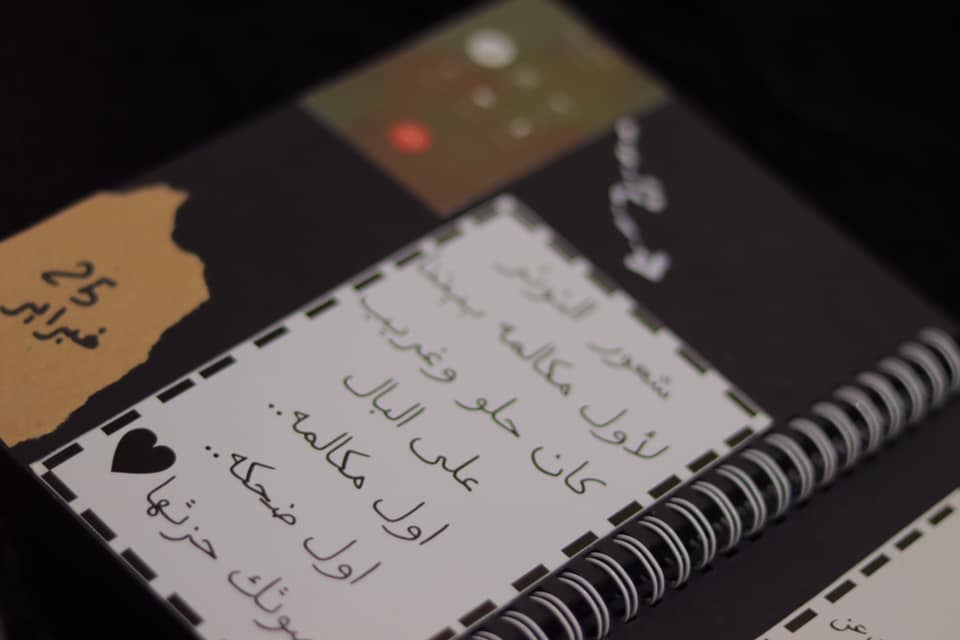 25
فبراير
شعور التوتر
لأول مكالمه بيننا
كان حلو وغريب
على البال
اول مكالمه..
اول ضحكه..
صوتك حزتها
عن